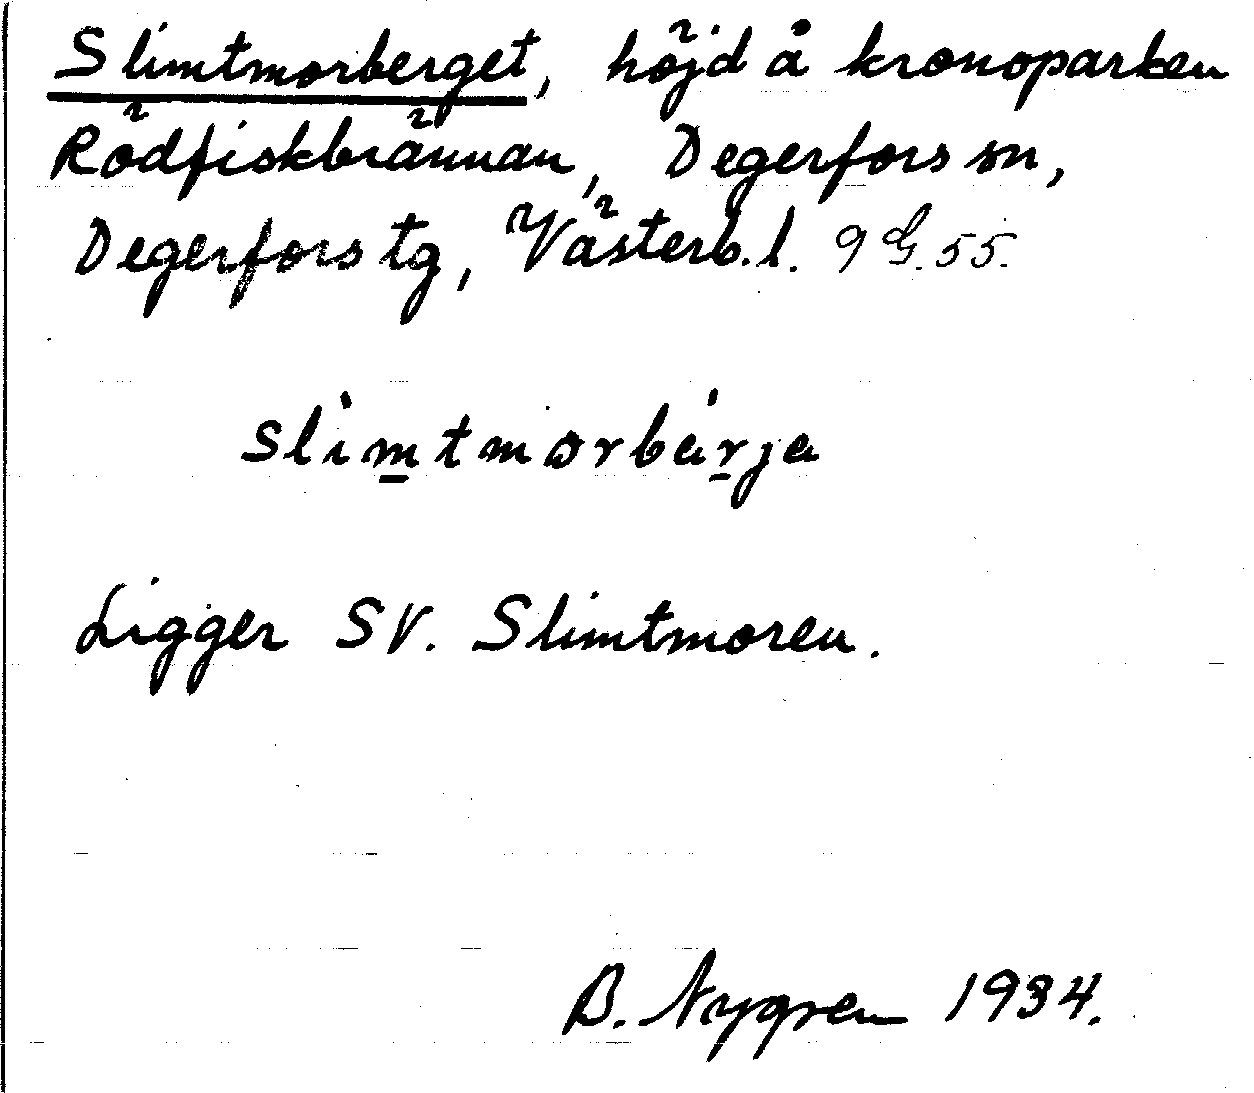 Slimtmorberget, höjd å kronoparken
Rödfiskbrännan, Degerfors sn,
Degerfors tg, Västerb. l. 9 G. 55.
slimtmorbárja
Ligger SV. Slimtmoren.
B. Nygren 1934.